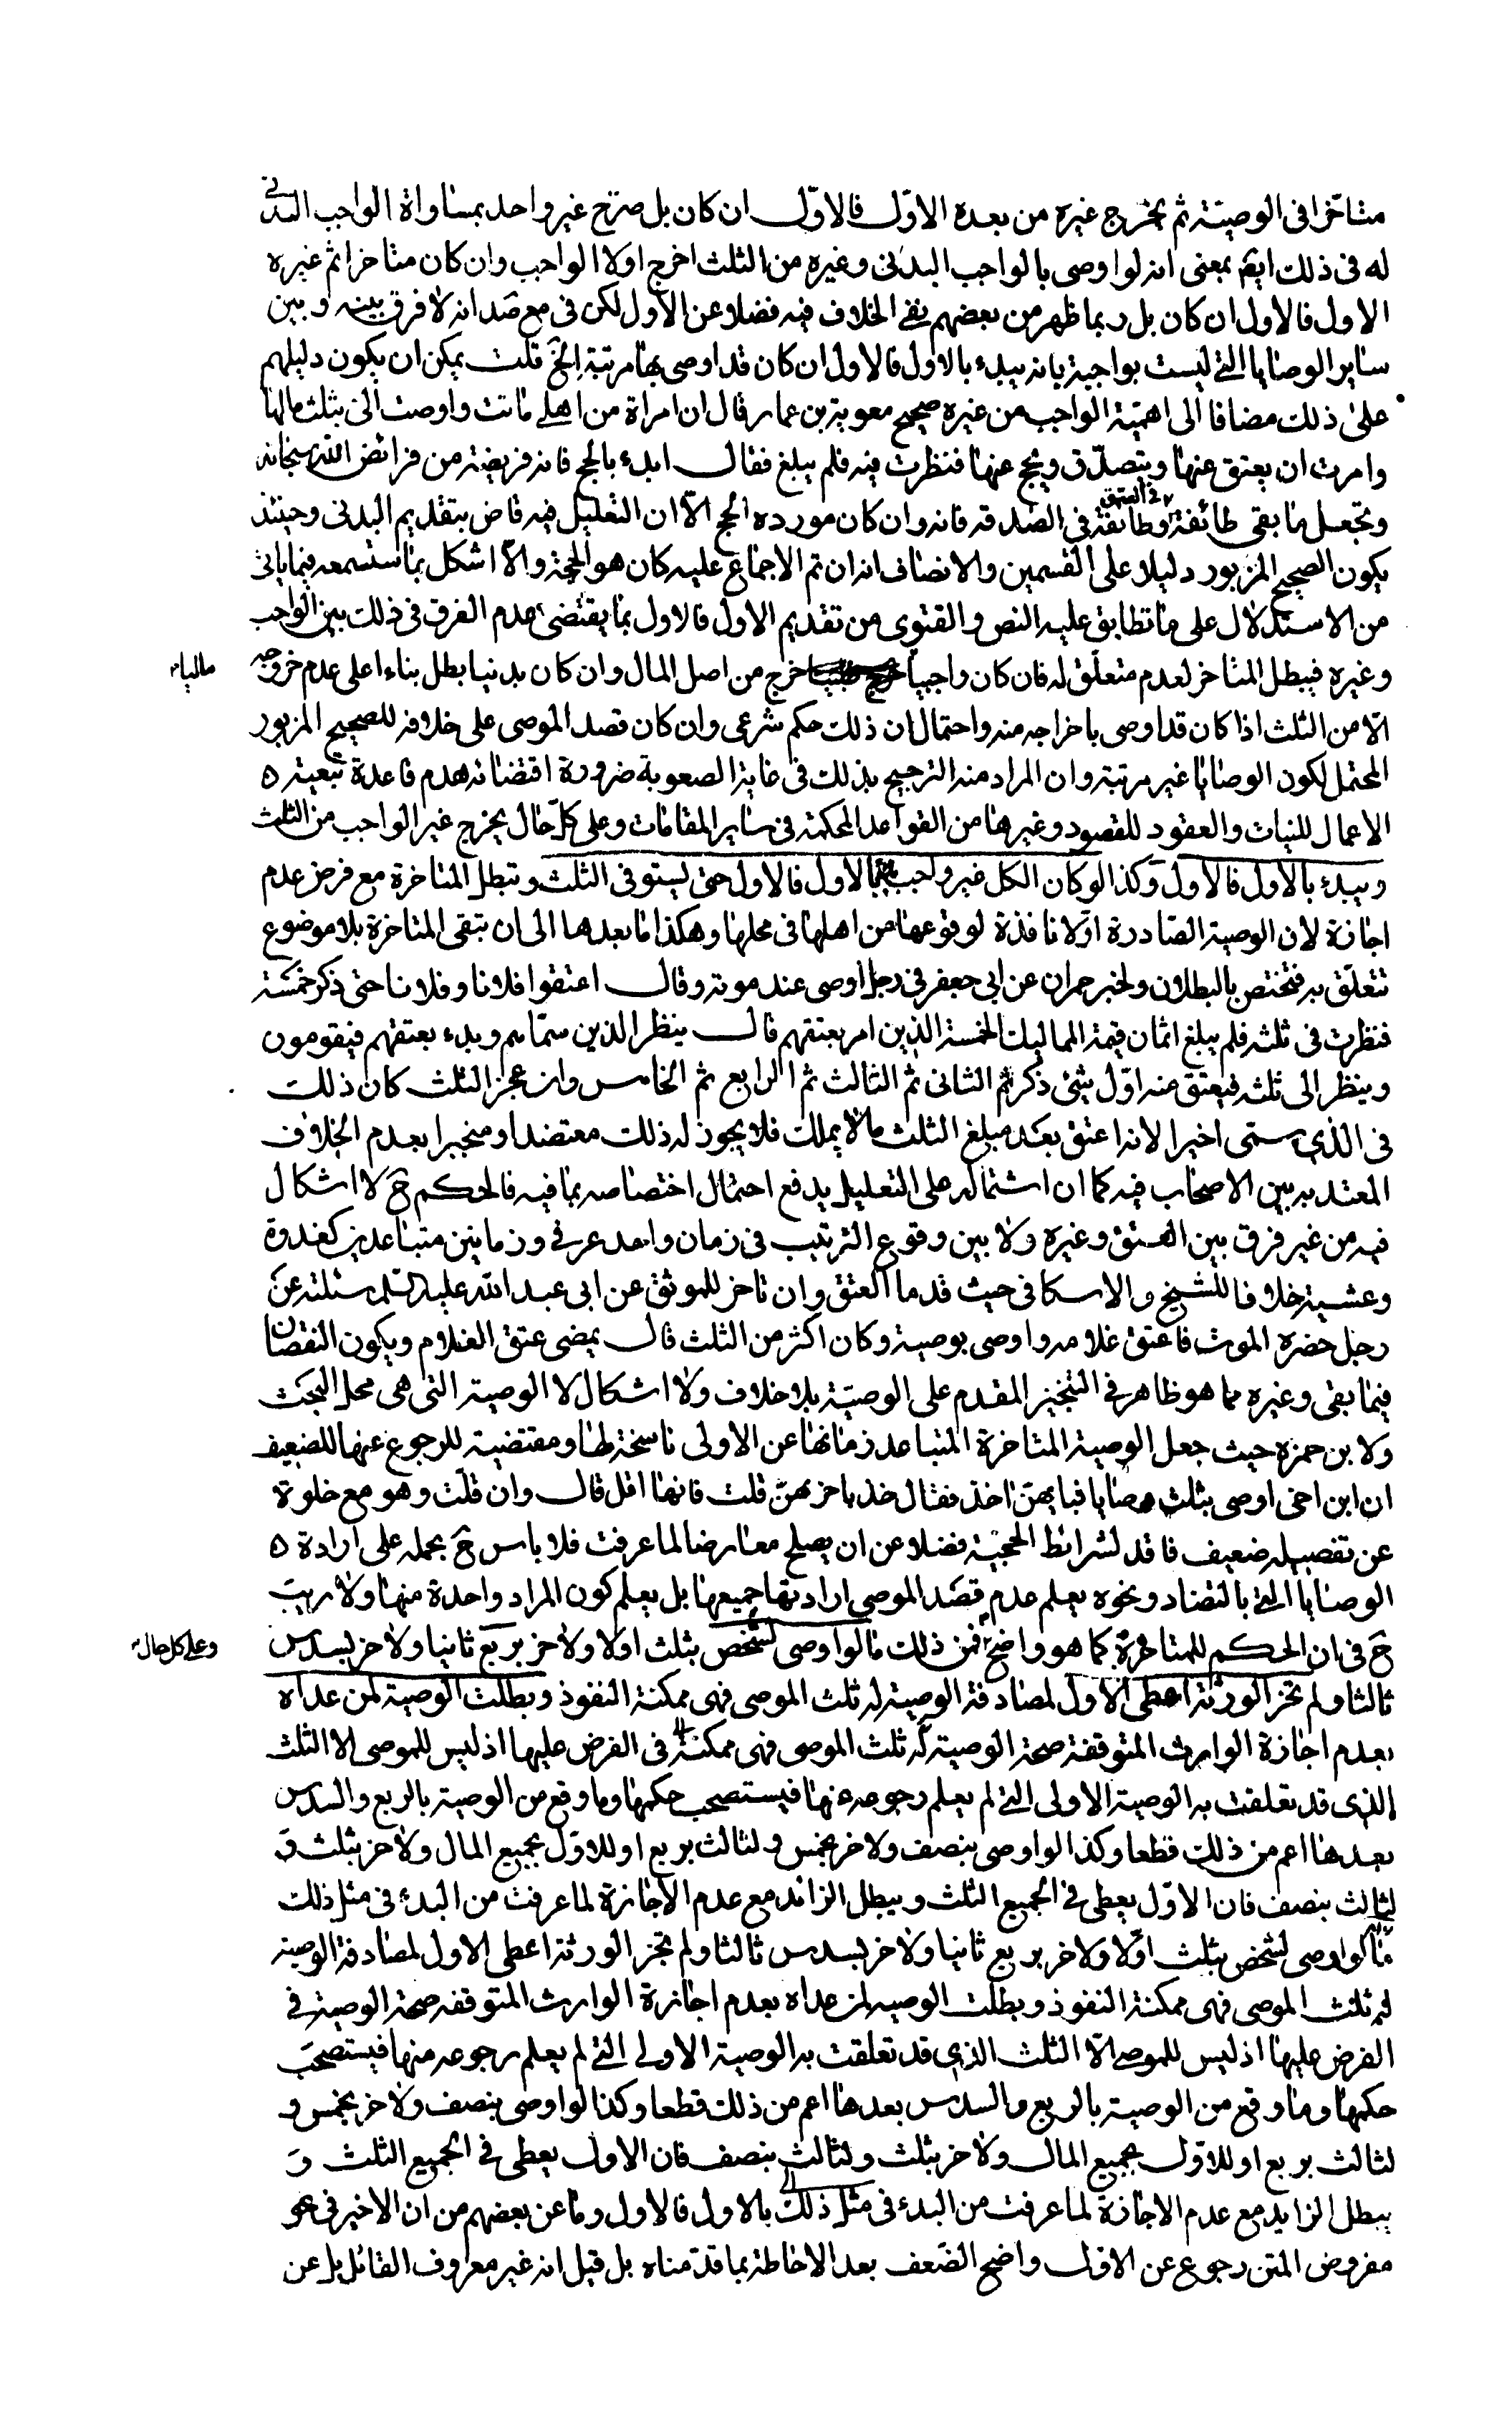 متاخرا فى الوصية ثم يخرج غيره من بعده الاوّل فالاوّل ان كان بل صرّح غير واحد بمساواة الواجب البدنى
له فى ذلك ايضم بمعنى انه لو اوصى بالواجب البدنى وغيره من الثلث اخرج اولا الواجب وان كان متاخرا ثم غيره
الاول فالاول ان كان بل ربما ظهر من بعضهم نفى الخلاف فيه فضلا عن الاول لكن فى مع صد انه لا فرق بينه وبين
ساير الوصايا التى ليست بواجبة بانه يبدء بالاول فالاول ان كان قد اوصى بها مرتبة الخ قلت يمكن ان يكون دليلهم
على ذلك مضافا الى اهميّة الواجب من غيره صحيح معوية بن عمار قال ان امراة من اهلى ماتت واوصت الىّ بثلث مالها
وامرت ان يعتق عنها ويتصدّق ويحج عنها فنظرت فيه فلم يبلغ فقال ابدء بالحج فانه فريضة من فرائض الله سبحانه
وتجعل ما بقى طائفة فى العتق وطائفة فى الصدقه فانه وان كان مورده الحج الاّ ان التعليل فيه قاض بتقديم البدنى وحينئذ
يكون الصحيح المزبور دليلا على القسمين والانصاف انه ان تم الاجماع عليه كان هو الحجة والاّ اشكل بما ستسمعه فيما ياتى
من الاستدلال على ما تطابق عليه النص والفتوى من تقديم الاول فالاول بما يقتضى عدم الفرق فى ذلك بين الواجب
وغيره فيبطل المتاخر لعدم متعلّق له فان كان واجبا ماليا خرج من اصل المال وان كان بدنيا بطل بناءا على عدم خروجه
الاّ من الثلث اذا كان قد اوصى باخراجه منه واحتمال ان ذلك حكم شرعى وان كان قصد الموصى على خلافه للصحيح المزبور
المحتمل لكون الوصايا غير مرتبة وان المراد منه الترجيح بذلك فى غاية الصعوبة ضرورة اقتضائه هدم قاعدة تبعية ه
الاعمال للنيات والعقود للقصود وغيرها من القواعد المحكمة فى ساير المقامات وعلى كلّ حال يخرج غير الواجب من الثلث
ويبدء بالاول فالاول وكذا لو كان الكل غير واجب بالاول فالاول حتى يستوفى الثلث وتبطل المتاخرة مع فرض عدم
اجازة لان الوصية الصّادرة اوّلا نافذة لوقوعها من اهلها فى محلها وهكذا ما بعدها الى ان تبقى المتاخرة بلا موضوع
تتعلّق به فتختص بالبطلان ولخبر حمران عن ابى جعفر فى رجل اوصى عند موته وقال اعتقوا فلانا وفلانا حتى ذكر خمسة
فنظرت فى ثلثه فلم يبلغ اثمان قيمة المماليك الخمسة الذين امر بعتقهم قال ينظر الذين سمّاهم وبدء بعتقهم فيقومون
وينظر الى ثلثه فيعتق منه اوّل شئ ذكر ثم الثانى ثم الثالث ثم الرابع ثم الخامس وان عجز الثلث كان ذلك
فى الذى سمّى اخيرا لانه اعتق بعد مبلغ الثلث مالا يملك فلا يجوز له ذلك معتضدا ومنجبرا بعدم الخلاف
المعتد به بين الاصحاب فيه كما ان اشتماله على التعليل يدفع احتمال اختصاصه بما فيه فالحكم ح لا اشكال
فيه من غير فرق بين العتق وغيره ولا بين وقوع الترتيب فى زمان واحد عرفى وزمانين متباعدين كغدوة
وعشية خلافا للشيخ والاسكافى حيث قدما العتق وان تاخر للموثق عن ابى عبد الله عليه السلم سئلته عن
رجل حضره الموت فاعتق غلامه واوصى بوصية وكان اكثر من الثلث قال يمضى عتق الغلام ويكون النقصان
فيما بقى وغيره مما هو ظاهر فى التنجيز المقدم على الوصيّة بلا خلاف ولا اشكال لا الوصية التى هى محل البحث
ولا بن حمزه حيث جعل الوصية المتاخرة المتباعد زمانها عن الاولى ناسخة لها ومقتضية للرجوع عنها للضعيف
ان ابن اخى اوصى بثلث وصايا فبايهنّ اخذ فقال خذ باخرهنّ قلت فانها اقل قال وان قلّت وهو مع خلوة
عن تفصيله ضعيف فاقد لشرائط الحجيّة فضلا عن ان يصلح معارضا لما عرفت فلا باس ح بحمله على ارادة ه
الوصايا التى بالتضاد ونحوه يعلم عدم قصد الموصى ارادتها جميعها بل يعلم كون المراد واحدة منها ولا ريب
ح فى ان الحكم للمتاخرة كما هو واضح وعلى كل حال فمن ذلك ما لو اوصى لشخص بثلث اولا ولاخر بربع ثانيا ولاخر بسدس
ثالثا ولم تجز الورثة اعطى الاول لمصادفة الوصية له ثلث الموصى فهى ممكنة النفوذ وبطلت الوصية لمن عداه
بعدم اجازة الوارث المتوقفة صحة الوصية له ثلث الموصى فهى ممكنة فى الفرض عليها اذ ليس للموصى الا الثلث
الذى قد تعلقت به الوصية الاولى التى لم يعلم رجوعه عنها فيستصحب حكمها وما وقع من الوصية بالربع والسدس
بعدها اعم من ذلك قطعا وكذا لو اوصى بنصف ولاخر بخمس ولثالث بربع او للاوّل بجميع المال ولاخر بثلث و
لثالث بنصف فان الاوّل يعطى فى الجميع الثلث ويبطل الزائد مع عدم الاجازة لما عرفت من البدء فى مثل ذلك
ما لو اوصى لشخص بثلث اوّلا ولاخر بربع ثانيا ولاخر بسدس ثالثا ولم تجز الورثة اعطى الاول لمصادفة الوصية
له ثلث الموصى فهى ممكنة النفوذ وبطلت الوصيه لمن عداه بعدم اجازة الوارث المتوقفه صحة الوصية فى
الفرض عليها اذ ليس للموصى الاّ الثلث الذى قد تعلقت به الوصية الاولى التى لم يعلم رجوعه منها فيستصحب
حكمها وما وقع من الوصية بالربع والسدس بعدها اعم من ذلك قطعا وكذا لو اوصى بنصف ولاخر بخمس و
لثالث بربع او للاوّل بجميع المال ولاخر بثلث ولثالث بنصف فان الاول يعطى فى الجميع الثلث و
يبطل الزايد مع عدم الاجازة لما عرفت من البدء فى مثل ذلك بالاول فالاول وما عن بعضهم من ان الاخير فى نحو
مفروض المتن رجوع عن الاوّل واضح الضّعف بعد الاحاطة بما قدّمناه بل قيل انه غير معروف القائل بل عن